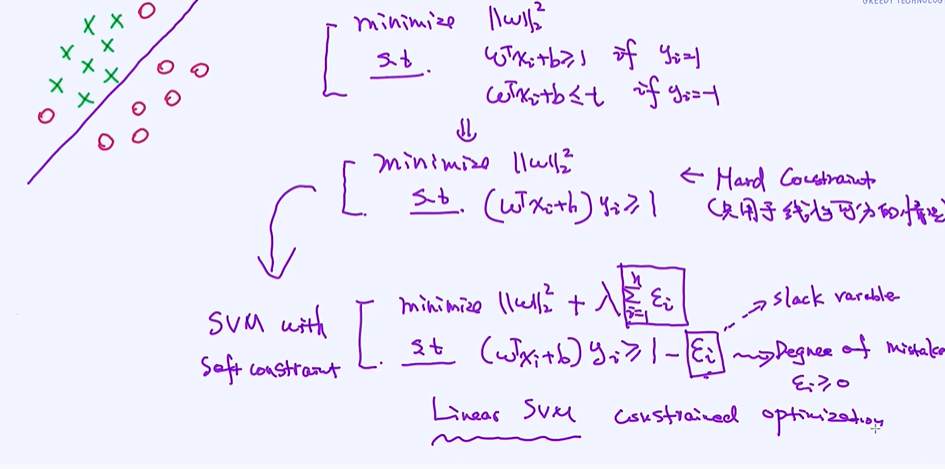 GREEDY TECHNOLOG
minimize ||w||₂²
s.t. wᵀxᵢ+b≥1 if yᵢ=1
wᵀxᵢ+b≤-1 if yᵢ=-1
⇓
minimize ||w||₂²
s.t. (wᵀxᵢ+b)yᵢ≥1
← Hard Constraint
(只用于线性可分的情况
SVM with
Soft constraint
minimize ||w||₂² + λ∑ᵢ₌₁ⁿ εᵢ
s.t (wᵀxᵢ+b)yᵢ≥1-εᵢ
slack varable
Degree of mistake
εᵢ≥0
Linear SVM constrained optimization